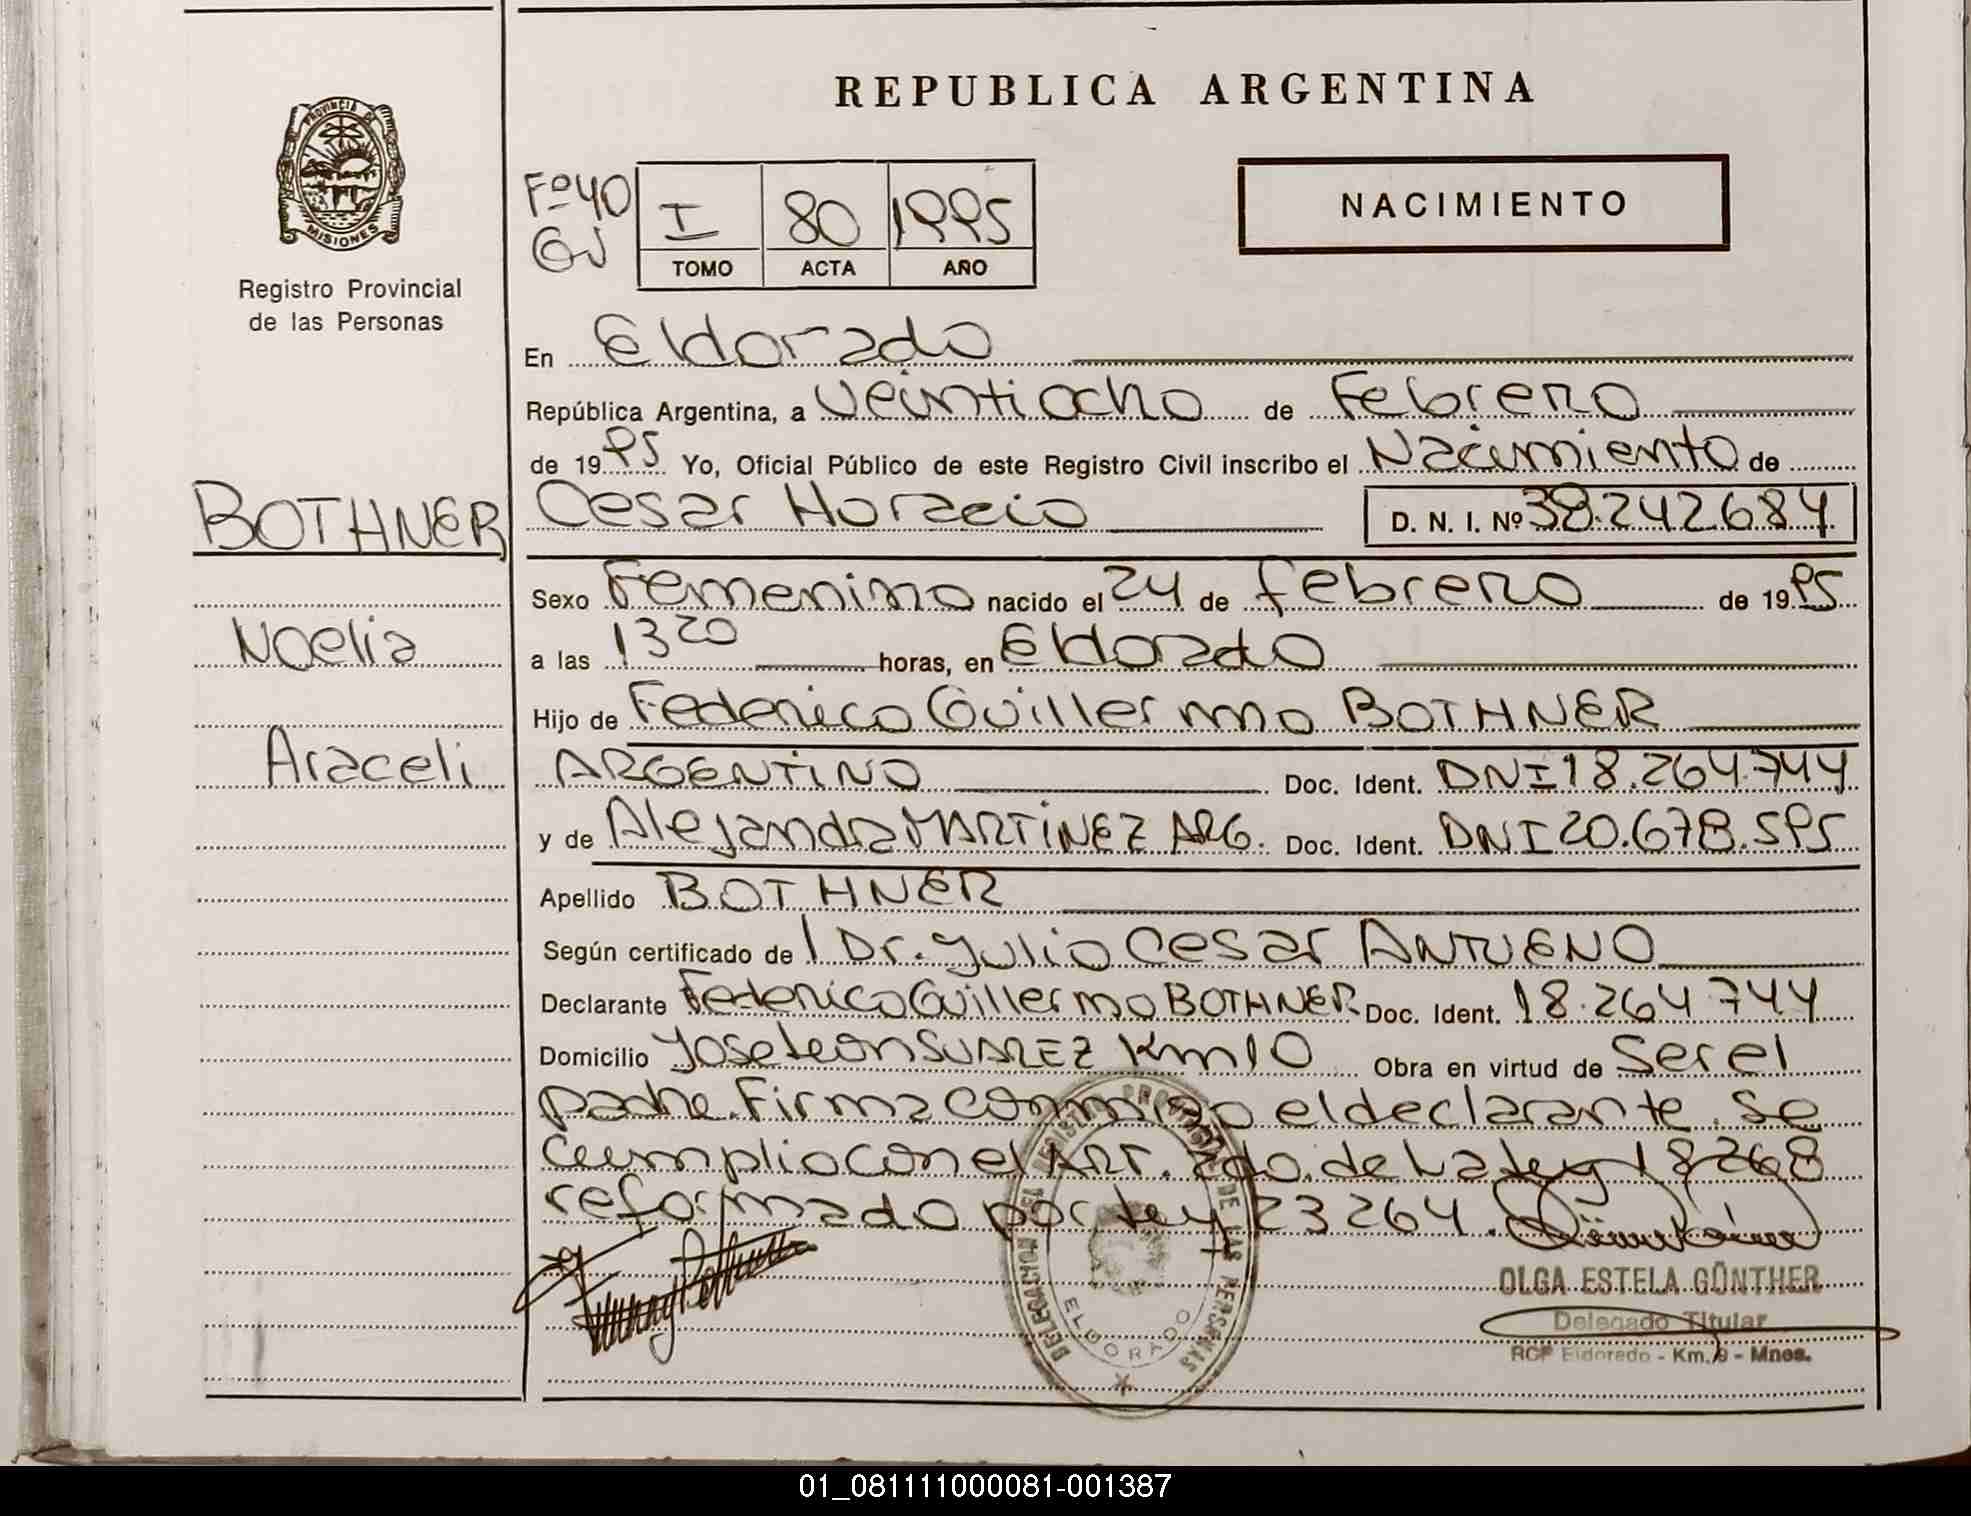 REPUBLICA ARGENTINA
PROVINCIA DE MISIONES
Registro Provincial
de las Personas
Fº40
I 80 1995
TOMO ACTA AÑO
NACIMIENTO
En Eldorado
República Argentina, a veintiocho de Febrero
de 1995 Yo, Oficial Público de este Registro Civil inscribo el Nacimiento de
BOTHNER
Cesar Horacio D. N. I. Nº 38.242.684
Sexo Femenino nacido el 24 de febrero de 1995
Noelia
a las 13 20 horas, en Eldorado
Hijo de Federico Guillermo BOTHNER
Araceli
ARGENTINO Doc. Ident. DNI 18.264.744
y de Alejandra MARTINEZ ARG. Doc. Ident. DNI 20.678.595
Apellido BOTHNER
Según certificado de l Dr. Julio Cesar ANTUENO
Declarante Federico Guillermo BOTHNER Doc. Ident. 18.264.744
Domicilio Jose Leon SUAREZ Km 10 Obra en virtud de Ser el
padre. Firma conmigo el declarante. Se
cumplio con el ART. 2do. de La Ley 18268
reformado por Ley 23264.
DELEGACION DEL REGISTRO PROVINCIAL DE LAS PERSONAS
ELDORADO
OLGA ESTELA GÜNTHER
Delegado Titular
RCP Eldorado - Km. 9 - Mnes.
01_081111000081-001387